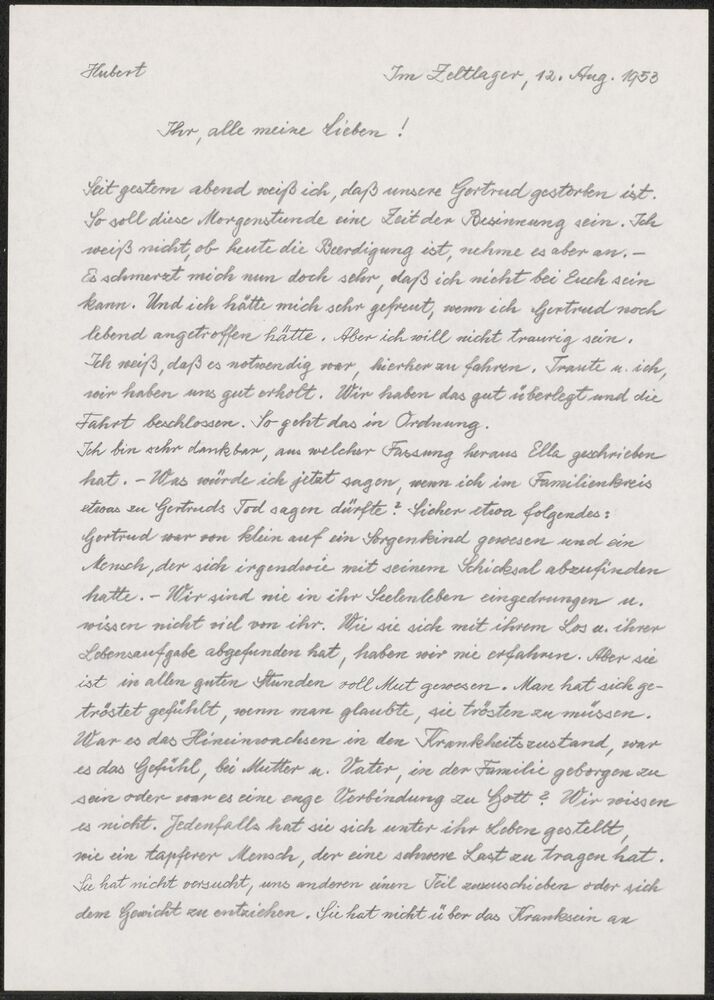 Hubert
Im Zeltlager, 12. Aug. 1953
Ihr, alle meine Lieben!
Seit gestern abend weiß ich, daß unsere Gertrud gestorben ist.
So soll diese Morgenstunde eine Zeit der Besinnung sein. Ich
weiß nicht, ob heute die Beerdigung ist, nehme es aber an. –
Es schmerzt mich nun doch sehr, daß ich nicht bei Euch sein
kann. Und ich hätte mich sehr gefreut, wenn ich Gertrud noch
lebend angetroffen hätte. Aber ich will nicht traurig sein.
Ich weiß, daß es notwendig war, hierher zu fahren. Traute u. ich,
wir haben uns gut erholt. Wir haben das gut überlegt und die
Fahrt beschlossen. So geht das in Ordnung.
Ich bin sehr dankbar, aus welcher Fassung heraus Ella geschrieben
hat. – Was würde ich jetzt sagen, wenn ich im Familienkreis
etwas zu Gertruds Tod sagen dürfte? Sicher etwa folgendes:
Gertrud war von klein auf ein Sorgenkind gewesen und ein
Mensch, der sich irgendwie mit seinem Schicksal abzufinden
hatte. – Wir sind nie in ihr Seelenleben eingedrungen u.
wissen nicht viel von ihr. Wie sie sich mit ihrem Los u. ihrer
Lebensaufgabe abgefunden hat, haben wir nie erfahren. Aber sie
ist in allen guten Stunden voll Mut gewesen. Man hat sich ge-
tröstet gefühlt, wenn man glaubte, sie trösten zu müssen.
War es das Hineinwachsen in den Krankheitszustand, war
es das Gefühl, bei Mutter u. Vater, in der Familie geborgen zu
sein oder war es eine enge Verbindung zu Gott? Wir wissen
es nicht. Jedenfalls hat sie sich unter ihr Leben gestellt,
wie ein tapferer Mensch, der eine schwere Last zu tragen hat.
Sie hat nicht versucht, uns anderen einen Teil zuzuschieben oder sich
dem Gewicht zu entziehen. Sie hat nicht über das Kranksein an